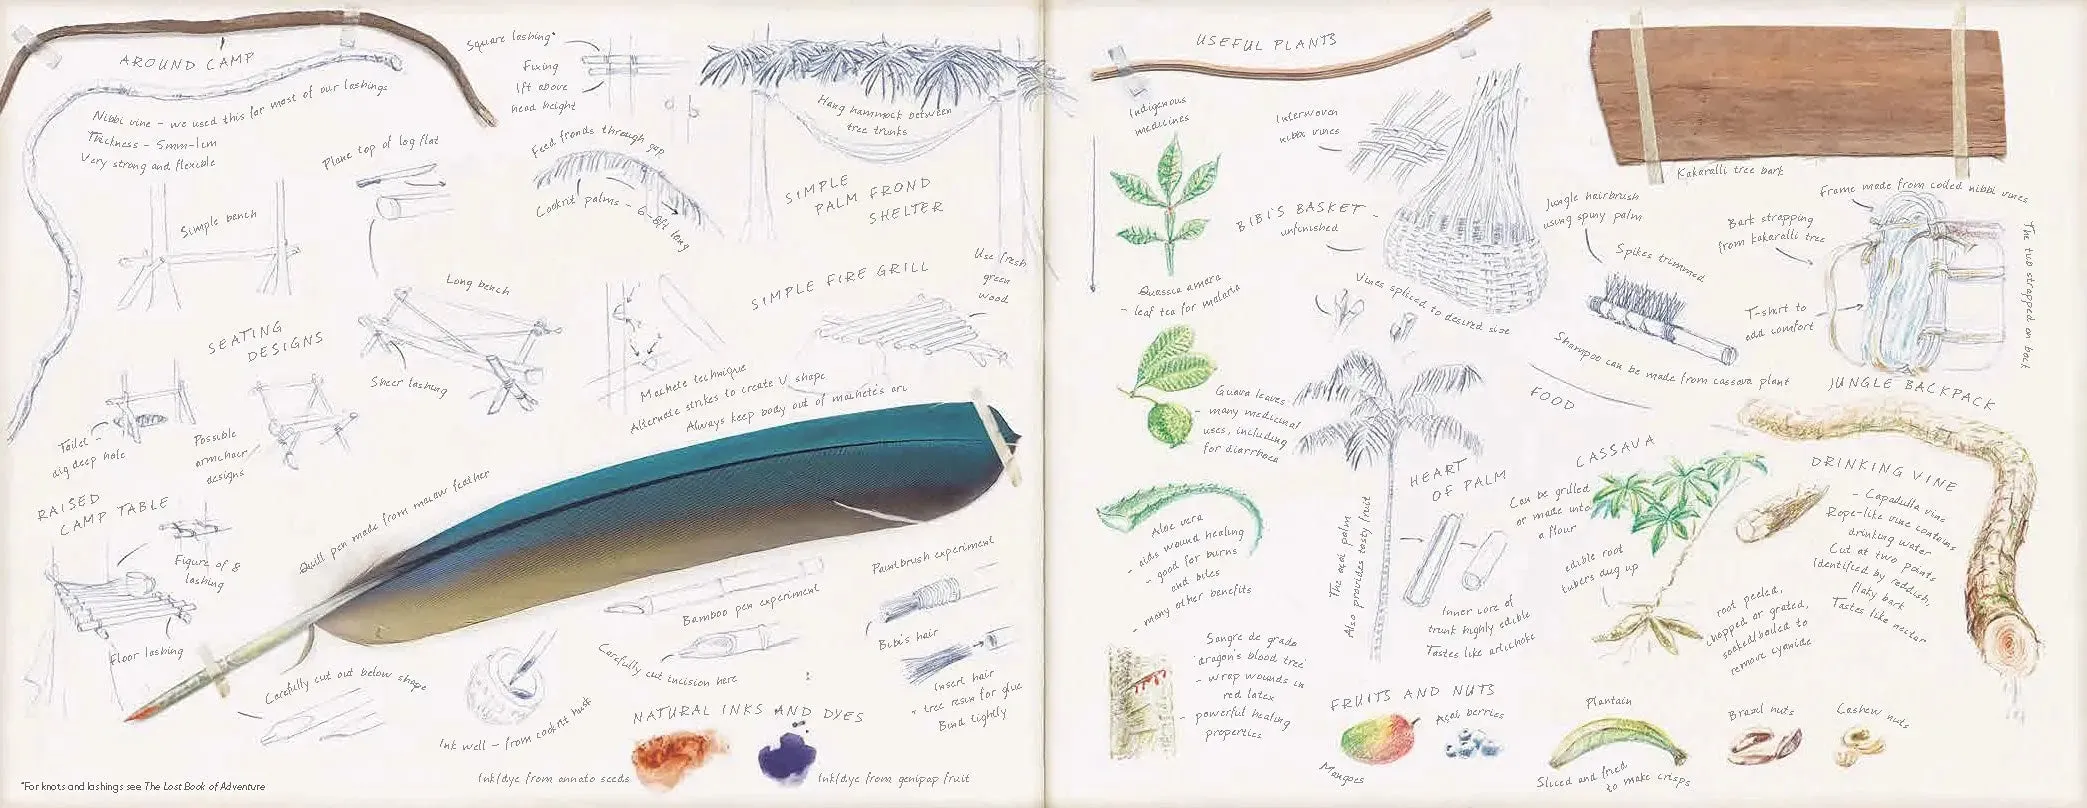 AROUND CAMP
Nibbi vine - we used this for most of our lashings
Thickness - 5mm-1cm
Very strong and flexible
Square lashing*
Fixing
1ft above
head height
Hang hammock between
tree trunks
Plane top of log flat
Feed fronds through gap
Cookrit palms - 6-8ft long
SIMPLE
PALM FROND
SHELTER
Simple bench
Long bench
SEATING
DESIGNS
Sheer lashing
SIMPLE FIRE GRILL
Use fresh
green
wood
Machete technique
Alternate strikes to create V shape
Always keep body out of machete's arc
Toilet -
dig deep hole
Possible
armchair
designs
RAISED
CAMP TABLE
Figure of 8
lashing
Floor lashing
Quill pen made from macaw feather
Carefully cut out below shape
Ink well - from cookrit husk
Bamboo pen experiment
Carefully cut incision here
Paintbrush experiment
Bibi's hair
Insert hair
+ tree resin for glue
Bind tightly
NATURAL INKS AND DYES
Ink/dye from annato seeds
Ink/dye from genipap fruit
*For knots and lashings see The Lost Book of Adventure
USEFUL PLANTS
Indigenous
medicines
Quassia amara
- leaf tea for malaria
Guava leaves
- many medicinal
uses, including
for diarrhoea
Aloe vera
- aids wound healing
- good for burns
and bites
- many other benefits
Sangre de grado
'dragon's blood tree'
- wrap wounds in
red latex
- powerful healing
properties
Interwoven
nibbi vines
BIBI'S BASKET -
unfinished
Vines spliced to desired size
Kakaralli tree bark
Jungle hairbrush
using spiny palm
Spikes trimmed
Shampoo can be made from cassava plant
Frame made from coiled nibbi vines
Bark strapping
from kakaralli tree
T-shirt to
add comfort
The tub strapped on back
JUNGLE BACKPACK
FOOD
HEART
OF PALM
The acai palm
Also provides tasty fruit
Inner core of
trunk highly edible
Tastes like artichoke
CASSAVA
Can be grilled
or made into
a flour
edible root
tubers dug up
root peeled,
chopped or grated,
soaked/boiled to
remove cyanide
DRINKING VINE
- Capadulla vine
Rope-like vine contains
drinking water
Cut at two points
Identified by reddish,
flaky bark
Tastes like nectar
FRUITS AND NUTS
Mangoes
Açai berries
Plantain
Sliced and fried
to make crisps
Brazil nuts
Cashew nuts